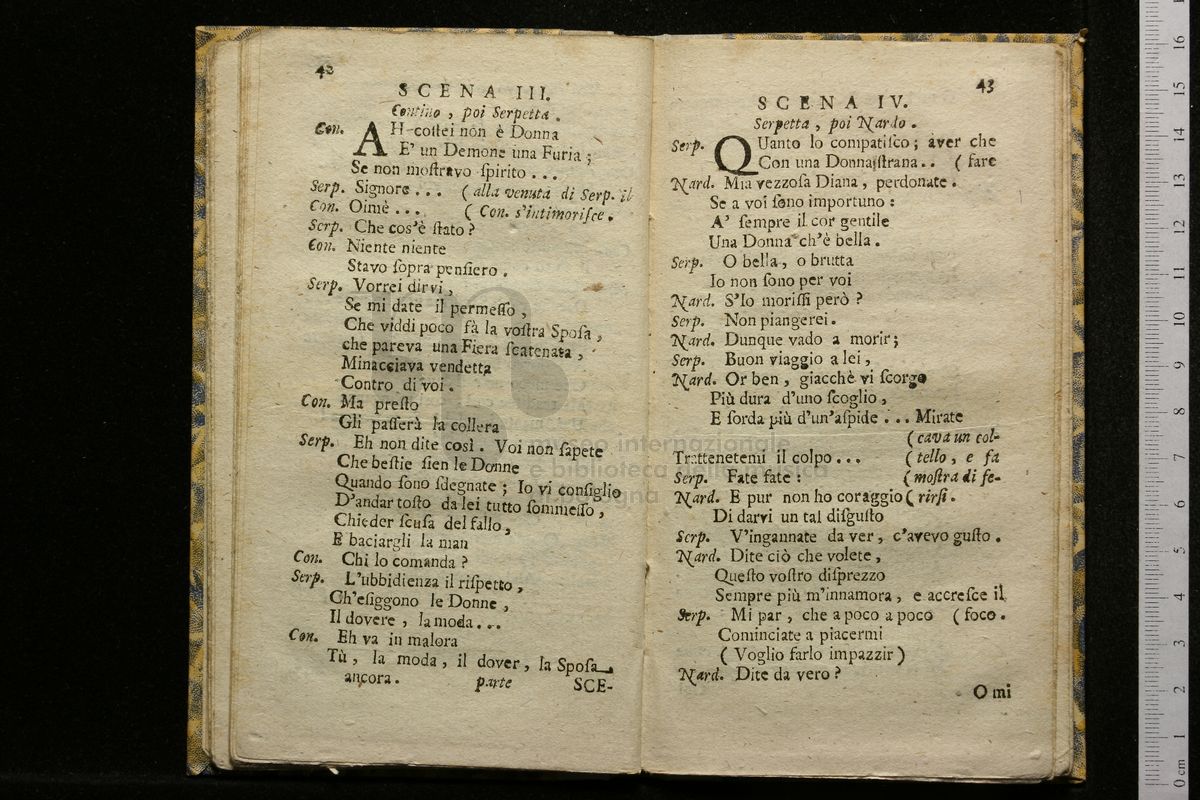 42
SCENA III.
Contino, poi Serpetta.
Con. AH costei non è Donna
E' un Demone una Furia;
Se non moſtravo ſpirito...
Serp. Signore... (alla venuta di Serp. il
Con. Oimè... (Con. s'intimoriſce.
Serp. Che cos'è ſtato?
Con. Niente niente
Stavo ſopra penſiero.
Serp. Vorrei dirvi,
Se mi date il permeſſo,
Che viddi poco fà la voſtra Spoſa,
che pareva una Fiera ſcatenata,
Minacciava vendetta
Contro di voi.
Con. Ma preſto
Gli paſſerà la collera
Serp. Eh non dite così. Voi non ſapete
Che beſtie ſien le Donne
Quando ſono ſdegnate; Io vi conſiglio
D'andar toſto da lei tutto ſommeſſo,
Chieder ſcuſa del fallo,
E baciargli la man
Con. Chi lo comanda?
Serp. L'ubbidienza il riſpetto,
Ch'eſiggono le Donne,
Il dovere, la moda...
Con. Eh va in malora
Tù, la moda, il dover, la Spoſa
ancora. parte SCE-
43
SCENA IV.
Serpetta, poi Nardo.
Serp. QUanto lo compatiſco; aver che
Con una Donna ſtrana.. (fare
Nard. Mia vezzoſa Diana, perdonate.
Se a voi ſono importuno:
A' ſempre il cor gentile
Una Donna ch'è bella.
Serp. O bella, o brutta
Io non ſono per voi
Nard. S'Io moriſſi però?
Serp. Non piangerei.
Nard. Dunque vado a morir;
Serp. Buon viaggio a lei,
Nard. Or ben, giacchè vi ſcorgo
Più dura d'uno ſcoglio,
E ſorda più d'un'aſpide... Mirate
(cava un col-
Trattenetemi il colpo... (tello, e fa
Serp. Fate fate: (moſtra di fe-
Nard. E pur non ho coraggio (rirſi.
Di darvi un tal diſguſto
Serp. V'ingannate da ver, c'avevo guſto.
Nard. Dite ciò che volete,
Queſto voſtro diſprezzo
Sempre più m'innamora, e accreſce il
Serp. Mi par, che a poco a poco (foco.
Cominciate a piacermi
(Voglio farlo impazzir)
Nard. Dite da vero?
O mi
museo internazionale
e biblioteca della musica
di bologna
0 cm 1 2 3 4 5 6 7 8 9 10 11 12 13 14 15 16